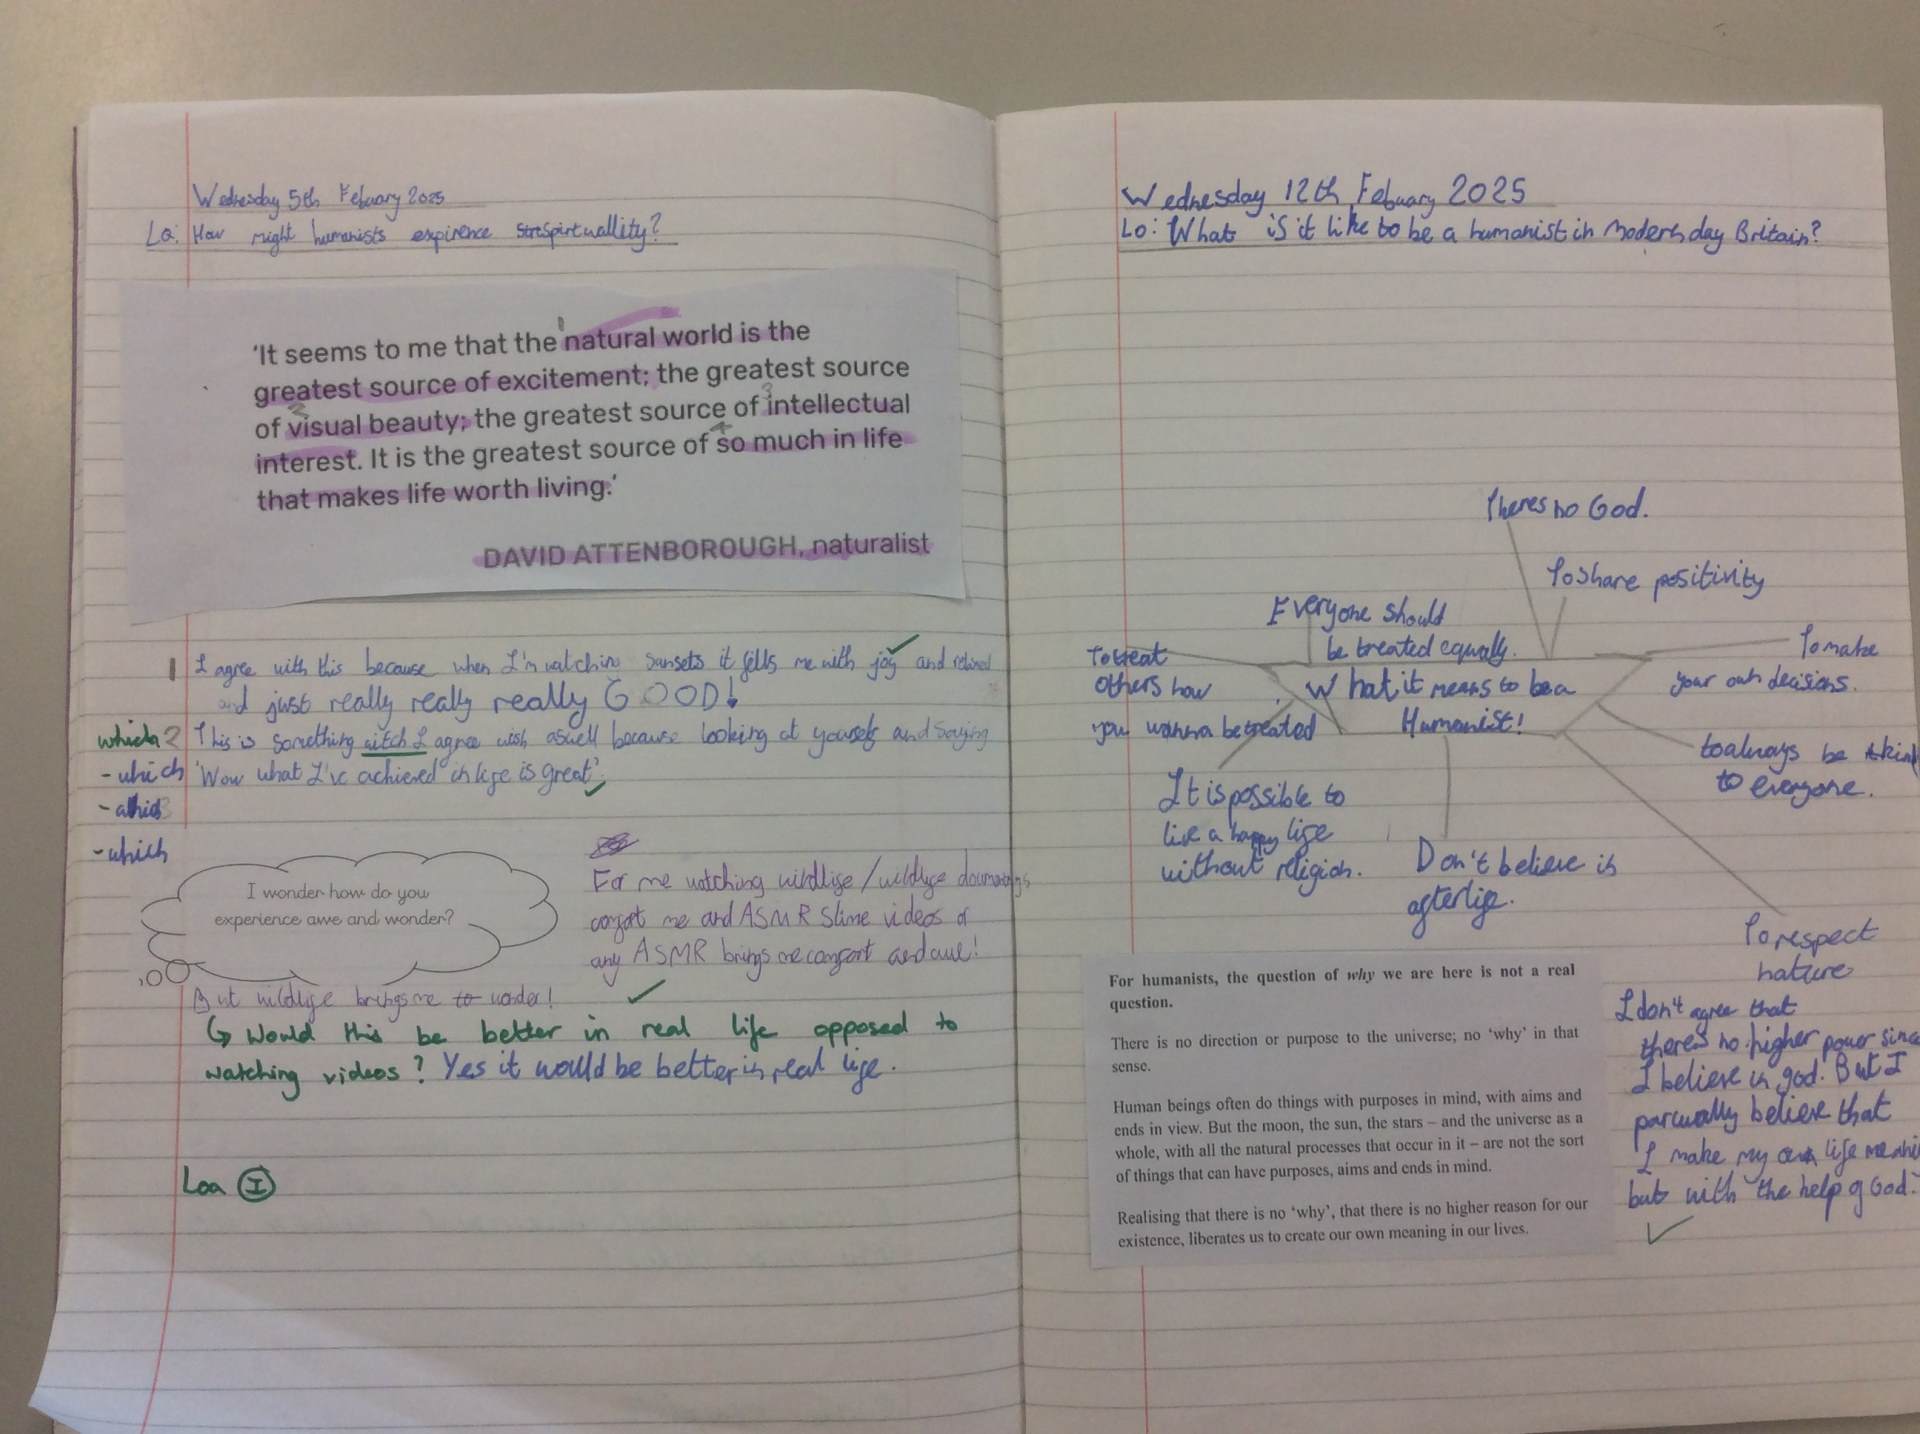 Wednesday 5th Febuary 2025
Lo: How might humanists expirence spirtuallity?
'It seems to me that the natural world is the
greatest source of excitement; the greatest source
of visual beauty; the greatest source of intellectual
interest. It is the greatest source of so much in life
that makes life worth living.'
DAVID ATTENBOROUGH, naturalist
1 2 3 4
1 I agree with this because when I'm watching sunsets it fills me with joy and
and just really really really GOOD!
which 2 This is something witch I agree wish aswell because looking at yourself and saying
- which 'Wow what I've achieved in life is great'.
-
- which
I wonder how do you
experience awe and wonder?
For me watching wildlife / wildlife
comfort me and ASMR slime videos or
any ASMR brings me comfort and awe!
But wildlife brings me to wonder!
Would this be better in real life opposed to
watching videos? Yes it would be better in real life.
Loa I
Wednesday 12th Febuary 2025
Lo: What is it like to be a humanist in modern day Britain?
Theres no God.
To share positivity
Everyone should
be treated equally.
To treat
others how
you wanna be treated
What it means to be a
Humanist!
To make
your own decisions.
to always be kind
to everyone.
It is possible to
live a happy life
without religion.
Don't believe is
afterlife.
To respect
nature
For humanists, the question of why we are here is not a real
question.
There is no direction or purpose to the universe; no 'why' in that
sense.
Human beings often do things with purposes in mind, with aims and
ends in view. But the moon, the sun, the stars – and the universe as a
whole, with all the natural processes that occur in it – are not the sort
of things that can have purposes, aims and ends in mind.
Realising that there is no 'why', that there is no higher reason for our
existence, liberates us to create our own meaning in our lives.
I don't agree that
theres no higher power since
I believe in god. But I
believe that
I make my own life
but with the help of God.